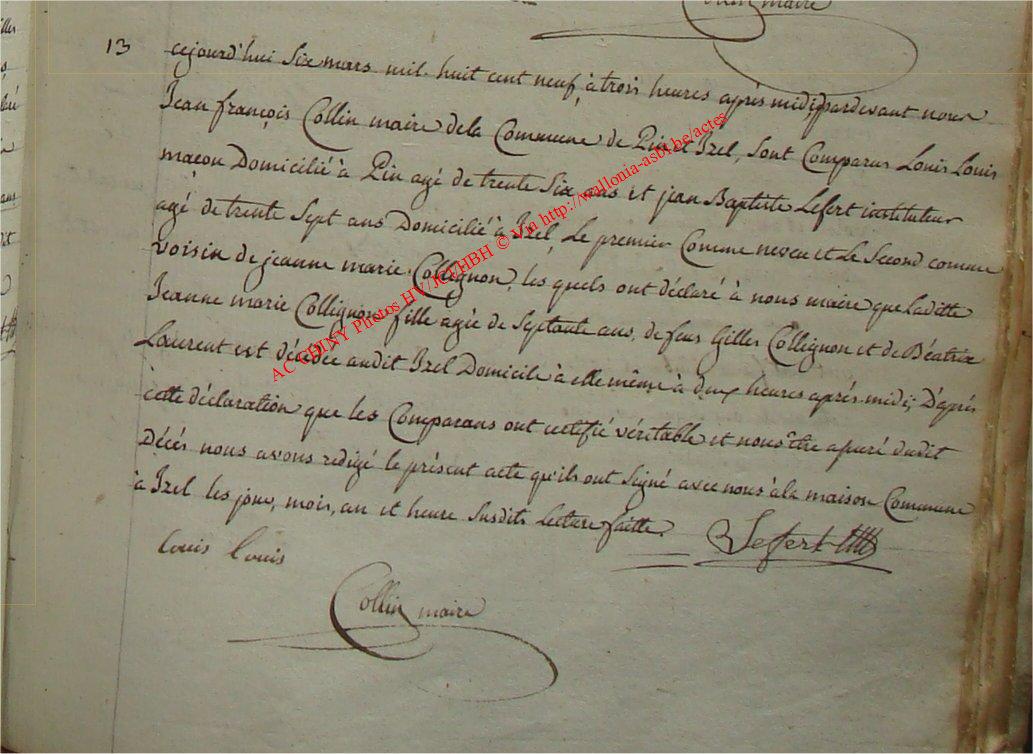 Collin maire
13
cejourd'hui Six mars mil huit cent neuf à trois heures après midi, pardevant nous
Jean françois Collin maire dela Commune de Pin et Izel, Sont Comparus Louis Louis
maçon Domicilié à Pin agé de trente Six ans et jean Baptiste Lefert instituteur
agé de trente Sept ans Domicilié à Izel, Le premier Comme neveu et Le Second comme
voisin de jeanne marie Collignon, les quels ont déclaré à nous maire que Laditte
Jeanne marie Collignon fille agée de Septante ans, de feus Gilles Collignon et de Béatrix
Laurent est décédée audit Izel Domicile à elle même à deux heures après midi; D'après
cette déclaration que les Comparans ont certifié véritable et nous être assuré dudit
Décés nous avons redigé le présent acte qu'ils ont Signé avec nous à la maison Commune
à Izel les jour, mois, an et heure Susdits Lecture faitte.
Lefert
Louis Louis
Collin maire
AC CHINY Photos HV/JCI/HBH © Via http://wallonia-asbl.be/actes